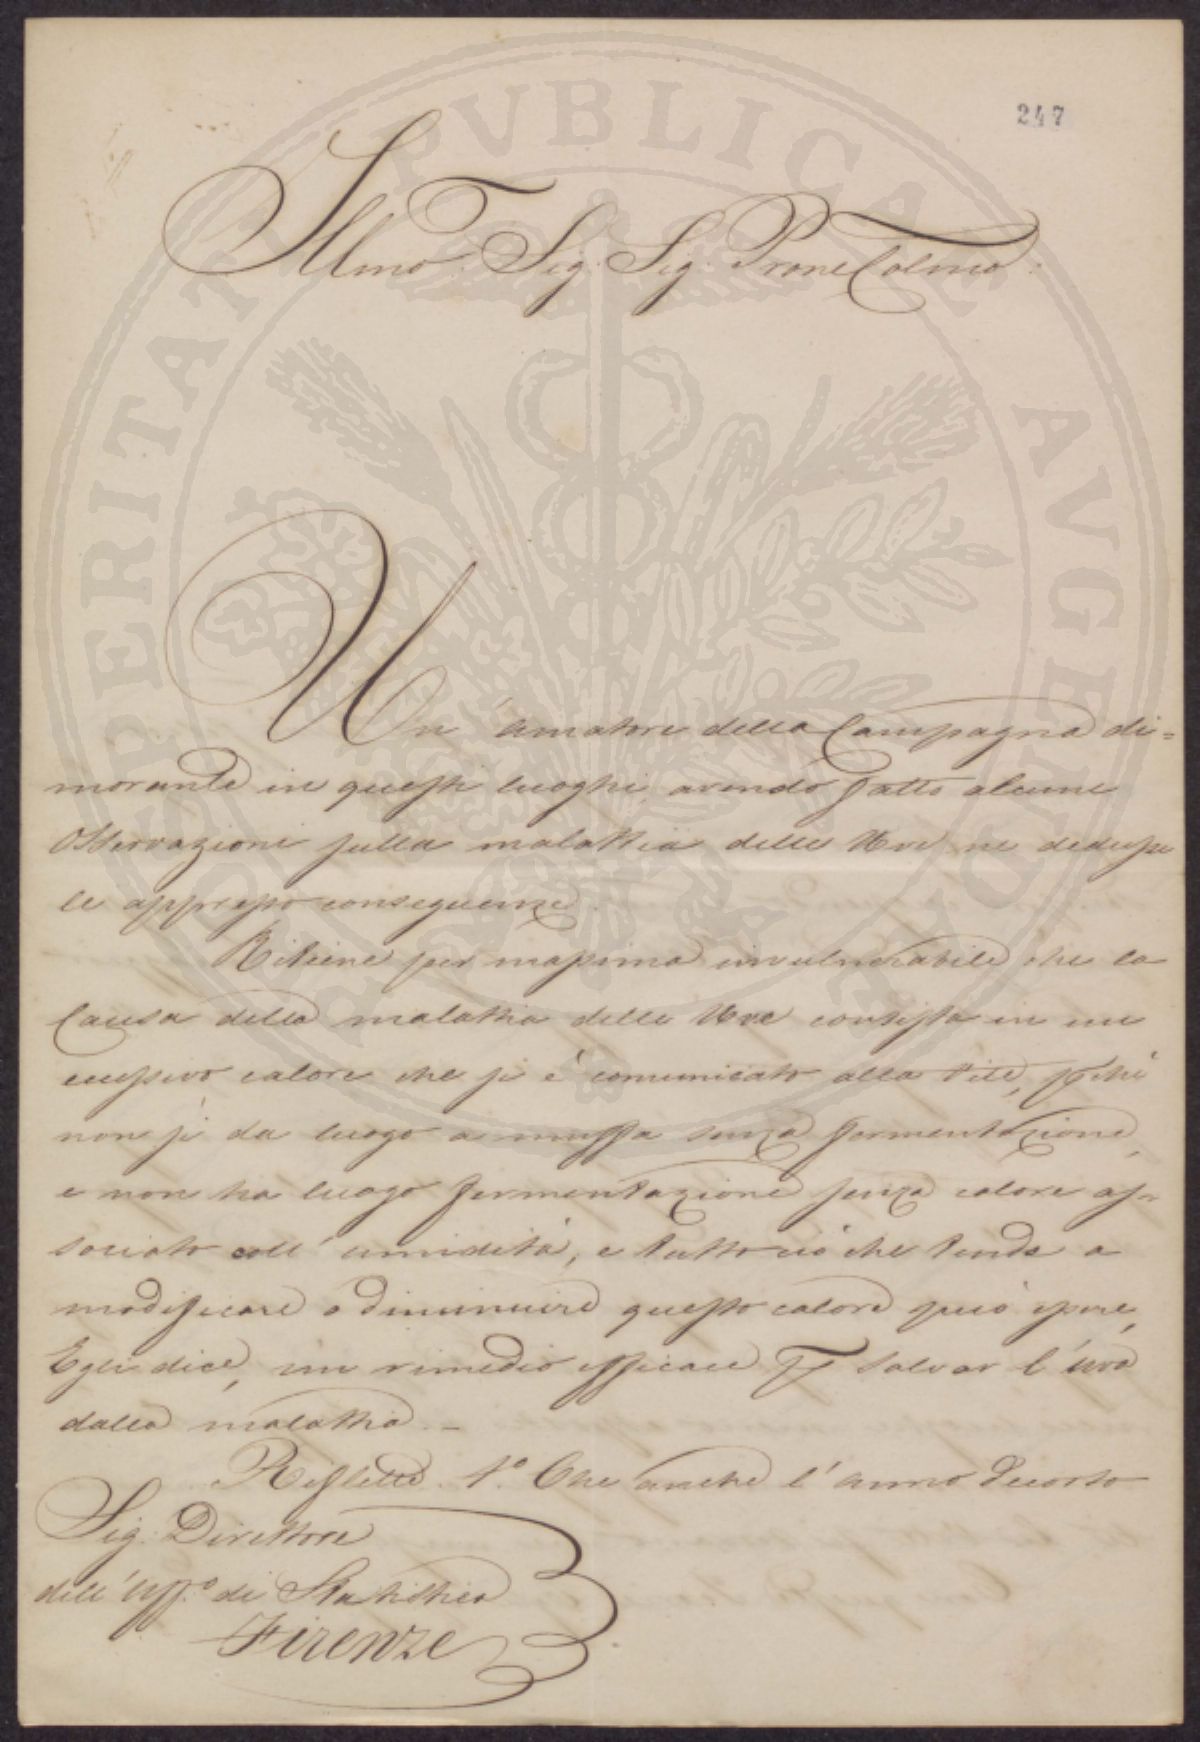 247
Illmo. Sig. Sig. Prone Colmo:
Un' amatore della Campagna di=
morante in questi luoghi, avendo fatto alcune
Osservazioni sulla malattia delle Uve ne dedusse
le appresso conseguenze.
Ritiene per massima invulnerabile che la
Causa della malattia delle Uve consista in un
eccessivo calore che si è comunicato alla Vite, pchè
non si da luogo a muffa senza fermentazione,
e non ha luogo fermentazione senza calore as=
sociato coll' umidità, e tutto ciò che tende a
modificare o diminuire questo calore può essere,
Egli dice, un rimedio efficace p salvar l'uva
dalla malattia. -
Riflette. 1.° Che anche l' anno decorso
Sig: Direttore
dell' Uff.° di Statistica
Firenze
PROSPERITATI PVBLICAE AVGENDAE